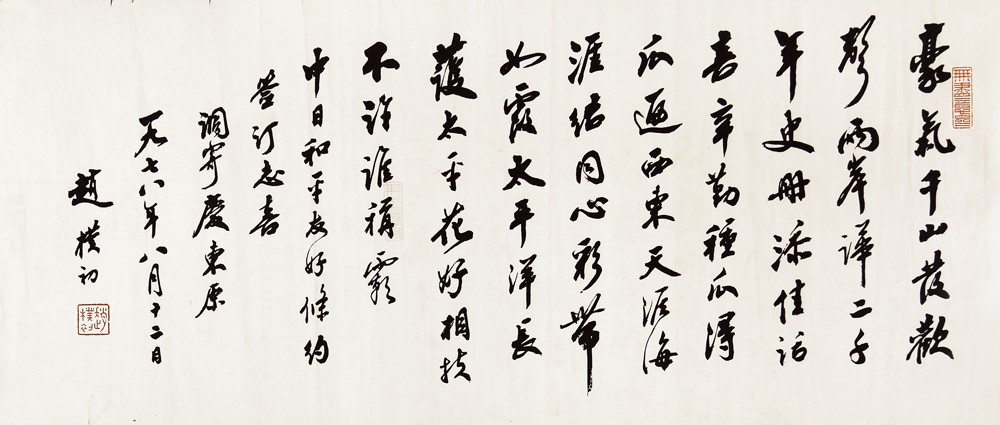 豪氣千山發歡
聲兩岸譁二千
年史冊添佳話
喜辛勤種瓜得
瓜遍西東天涯海
涯結同心彩帶
如霞太平洋長
護太平花好相扶
不許誰稱霸
中日和平友好條約
簽訂志喜
調寄慶東原
一九七八年八月十二日
趙樸初
趙樸初